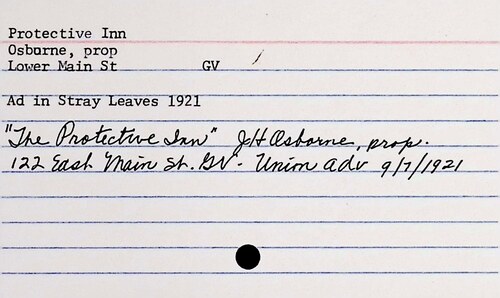 Protective Inn
Osborne, prop
Lower Main St GV
Ad in Stray Leaves 1921
"The Protective Inn" JH Osborne, prop.
122 East Main St. GV - Union adv 9/7/1921